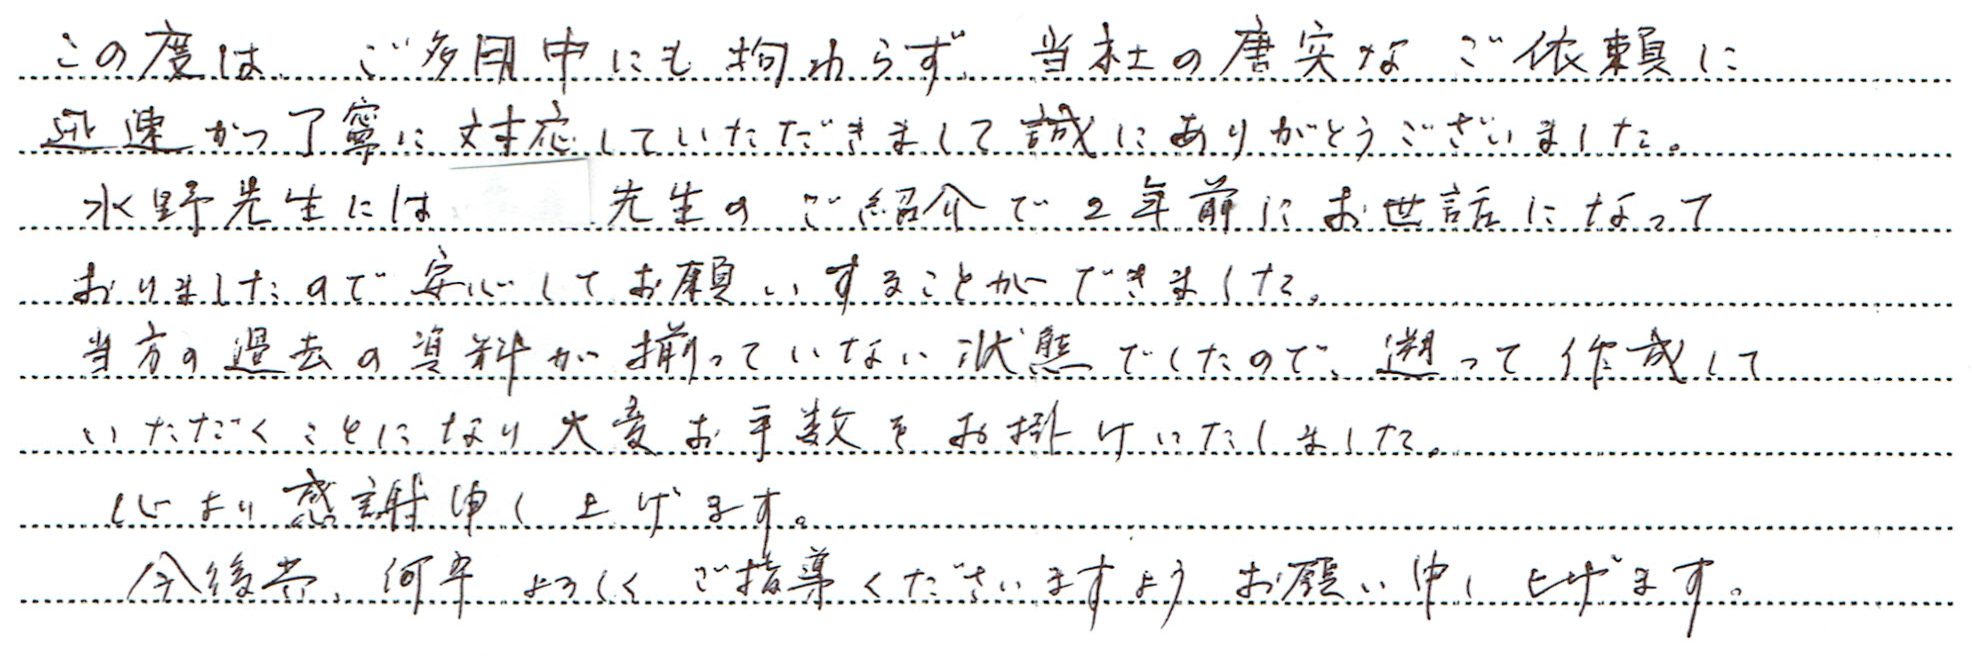 この度は、ご多用中にも拘わらず、当社の唐突なご依頼に
迅速かつ丁寧に対応していただきまして誠にありがとうございました。
水野先生には 先生のご紹介で2年前にお世話になって
おりましたので安心してお願いすることができました。
当方の過去の資料が揃っていない状態でしたので、遡って作成して
いただくことになり大変お手数をお掛けいたしました。
心より感謝申し上げます。
今後共、何卒よろしくご指導くださいますようお願い申し上げます。